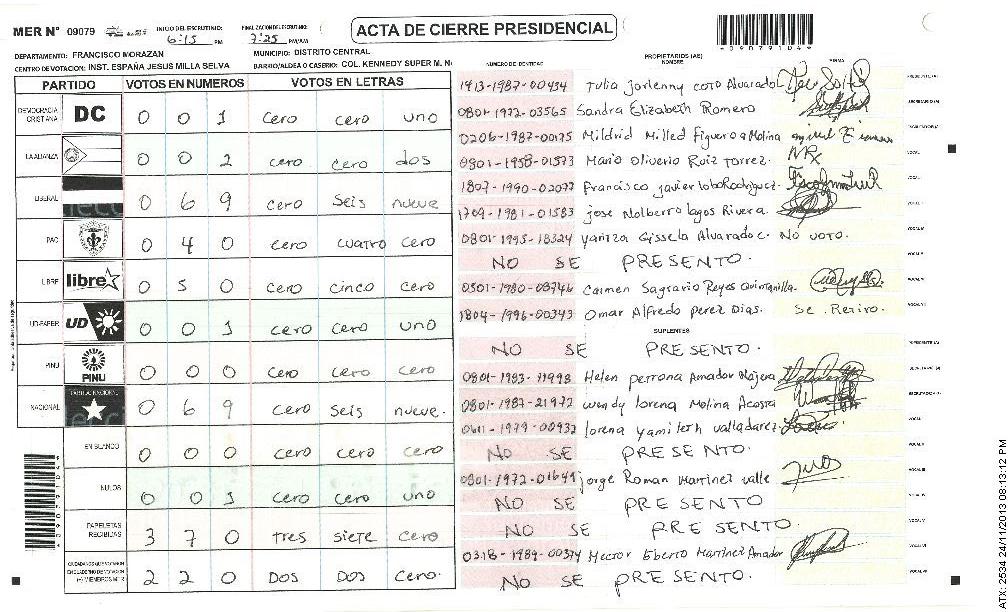 MER Nº 09079
INICIO DEL ESCRUTINIO: 6:15 PM
FINALIZACION DEL ESCRUTINIO: 7:25 PM/AM
ACTA DE CIERRE PRESIDENCIAL
DEPARTAMENTO: FRANCISCO MORAZAN
MUNICIPIO: DISTRITO CENTRAL
CENTRO DE VOTACION: INST. ESPAÑA JESUS MILLA SELVA
BARRIO/ALDEA O CASERIO: COL. KENNEDY SUPER M. N
PARTIDO VOTOS EN NUMEROS VOTOS EN LETRAS
DEMOCRACIA CRISTIANA DC 0 0 1 cero cero uno
LA ALIANZA 0 0 2 cero cero dos
LIBERAL 0 6 9 cero seis nueve
PAC 0 4 0 cero cuatro cero
LIBRE libre 0 5 0 cero cinco cero
UD-FAPER UD 0 0 1 cero cero uno
PINU PINU 0 0 0 cero cero cero
NACIONAL 0 6 9 cero seis nueve.
EN BLANCO 0 0 0 cero cero cero
NULOS 0 0 1 cero cero uno
PAPELETAS RECIBIDAS 3 7 0 tres siete cero
2 2 0 DOS DOS cero.
NUMERO DE IDENTIDAD
PROPIETARIOS (AS)
NOMBRE
FIRMA
1413-1987-00434 Tulia Jorlenny coto Alvarado
0801-1972-03565 Sandra Elizabeth Romero
0206-1987-00175 Mildrid Milled Figueroa Molina
0801-1958-01573 Mario Oliverio Ruiz Torrez.
1807-1990-02077 Francisco javier lobo Rodriguez.
1709-1981-01583 jose Nolberto lagos Rivera.
0801-1995-18324 yaritza Gissela Alvarado c. NO VOTO.
NO SE PRESENTO.
0501-1980-08746 Carmen Sagrario Reyes Quintanilla.
1804-1996-00343 Omar Alfredo perez Dias. Se Retiro.
SUPLENTES
NO SE PRESENTO.
0801-1983-11998 Helen perrona Amador Najera
0801-1987-21972 wendy lorena Molina Acosta
0611-1979-00932 lorena yamileth valladarez
No SE PRESENTO.
0801-1972-01649 jorge Roman Martinez valle
NO SE PRESENTO
NO SE PRESENTO.
0318-1989-00374 Hector Eberto Martinez Amador
No SE PRESENTO.
ATX: 2534 24/11/2013 08:13:12 PM